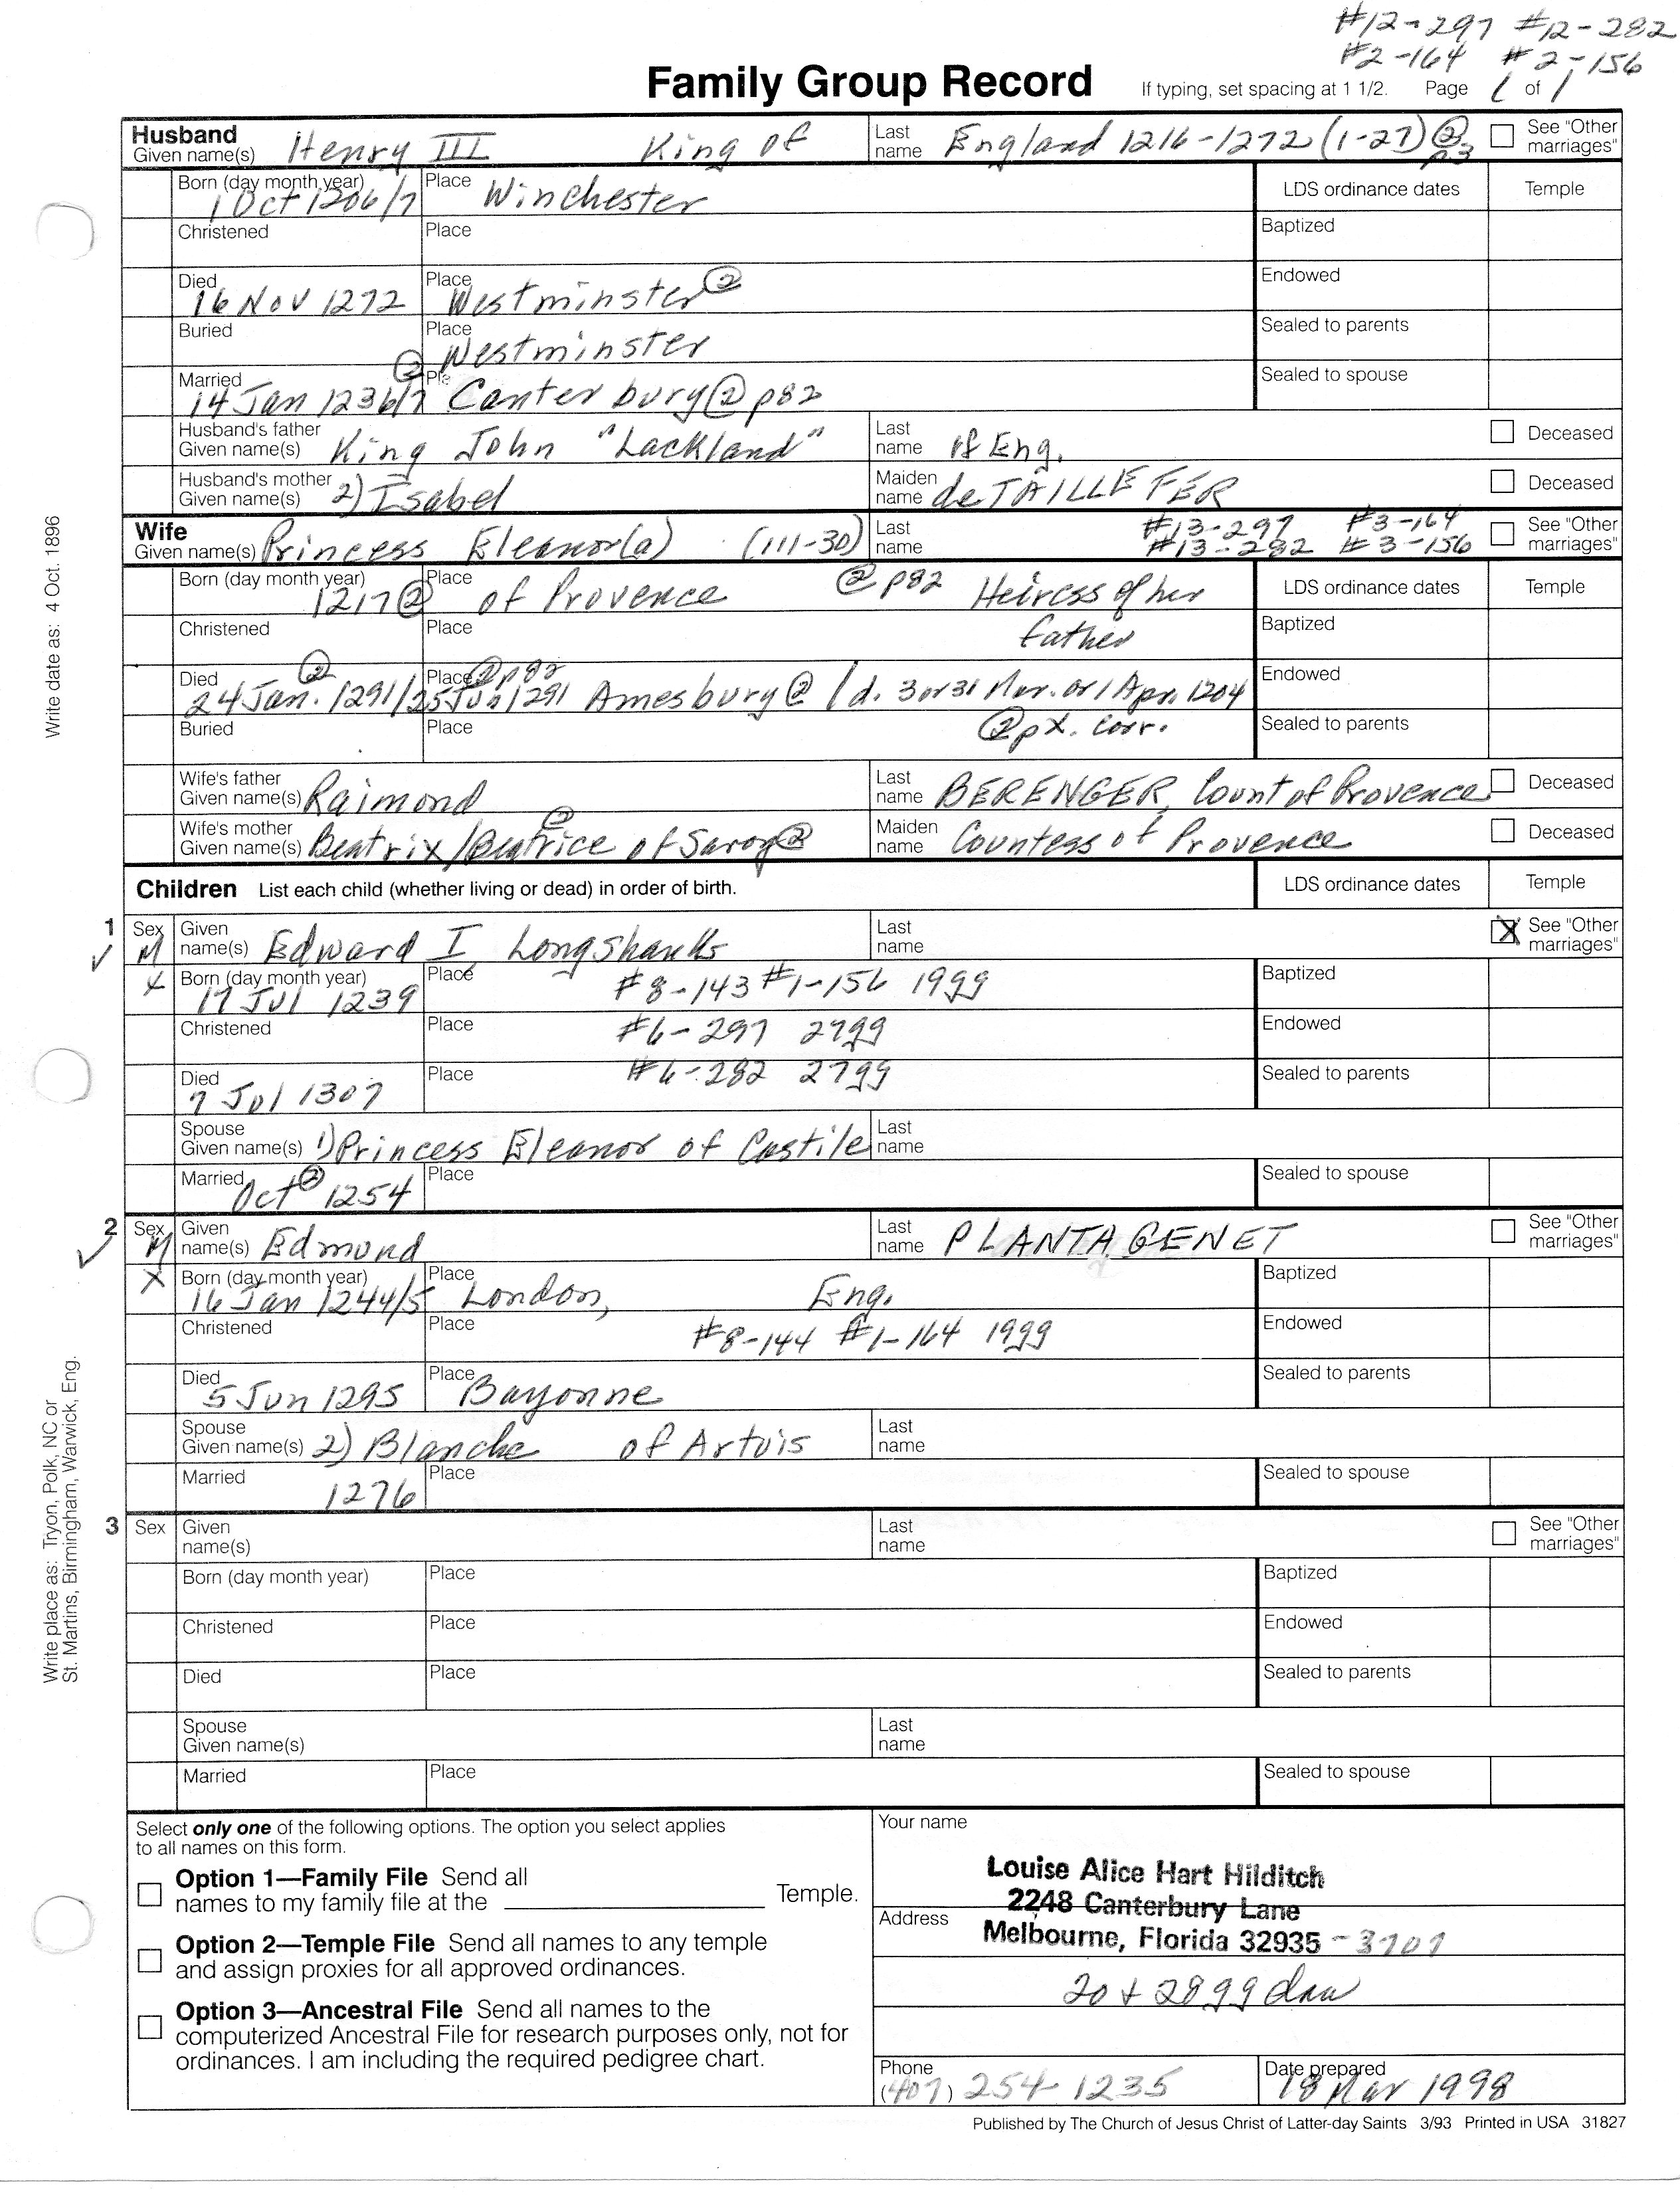 #12-297 #12-282
#2-164 #2-156
Family Group Record If typing, set spacing at 1 1/2. Page 1 of 1
Husband
Given name(s) Henry III King of Last name England 1216-1272 (1-27) ② p3 See "Other marriages"
Born (day month year) 1 Oct 1206/7 Place Winchester LDS ordinance dates Temple
Christened Place Baptized
Died 16 Nov 1272 Place Westminster ② Endowed
Buried Place Westminster Sealed to parents
Married 14 Jan 1236/7 ② Place Canterbury ② p82 Sealed to spouse
Husband's father Given name(s) King John "Lackland" Last name of Eng. Deceased
Husband's mother Given name(s) 2) Isabel Maiden name de TAILLEFER Deceased
Wife
Given name(s) Princess Eleanor(a) (111-30) Last name #13-297 #3-164 #13-282 #3-156 See "Other marriages"
Born (day month year) 1217 ② Place of Provence ② p82 Heiress of her father LDS ordinance dates Temple
Christened Place Baptized
Died ② 24 Jan. 1291/25 Jun 1291 Place ② p82 Amesbury ② / d. 3 or 31 Mar. or 1 Apr. 1204 Endowed
Buried Place ② px. corr. Sealed to parents
Wife's father Given name(s) Raimond Last name BERENGER, Count of Provence Deceased
Wife's mother Given name(s) Beatrix/Beatrice ② of Savoy ② Maiden name Countess of Provence Deceased
Children List each child (whether living or dead) in order of birth. LDS ordinance dates Temple
1 Sex M Given name(s) Edward I Longshanks Last name See "Other marriages"
Born (day month year) 17 Jul 1239 Place #8-143 #1-156 19gg Baptized
Christened Place #6-297 27gg Endowed
Died 7 Jul 1307 Place #6-282 27gg Sealed to parents
Spouse Given name(s) 1) Princess Eleanor of Castile Last name
Married Oct ② 1254 Place Sealed to spouse
2 Sex M Given name(s) Edmund Last name PLANTAGENET See "Other marriages"
Born (day month year) 16 Jan 1244/5 Place London, Eng. Baptized
Christened Place #8-144 #1-164 19gg Endowed
Died 5 Jun 1295 Place Bayonne Sealed to parents
Spouse Given name(s) 2) Blanche of Artois Last name
Married 1276 Place Sealed to spouse
3 Sex Given name(s) Last name See "Other marriages"
Born (day month year) Place Baptized
Christened Place Endowed
Died Place Sealed to parents
Spouse Given name(s) Last name
Married Place Sealed to spouse
Select only one of the following options. The option you select applies
to all names on this form.
Option 1—Family File Send all
names to my family file at the Temple.
Option 2—Temple File Send all names to any temple
and assign proxies for all approved ordinances.
Option 3—Ancestral File Send all names to the
computerized Ancestral File for research purposes only, not for
ordinances. I am including the required pedigree chart.
Your name
Louise Alice Hart Hilditch
2248 Canterbury Lane
Address Melbourne, Florida 32935 -3707
20 + 28gg dau
Phone (407) 254-1235 Date prepared 18 Mar 1998
Published by The Church of Jesus Christ of Latter-day Saints 3/93 Printed in USA 31827
Write date as: 4 Oct. 1896
Write place as: Tryon, Polk, NC or
St. Martins, Birmingham, Warwick, Eng.